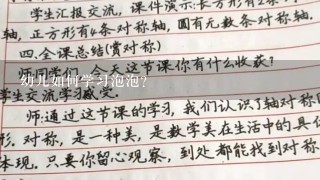 学生汇报交流,课件演示:长方形有2条
轴,正方形有4条对称轴,圆有无数条对称轴.
四.全课总结(赏对称)
师:同学们,今天这节课你有什么收获?
幼儿如何学习泡泡?
学生交流学习感受.
师:通过这节课的学习,我们认识了轴对称
形.对称,是一种美,是数学美在生活中的具
体现.只要你留心观察,到处都能找到对称